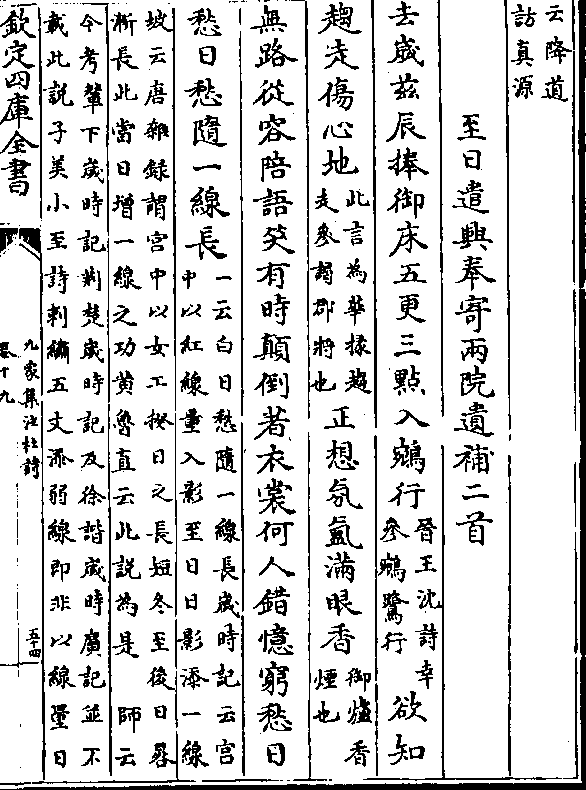 云降道
訪真源
至日遣興奉寄兩院遺補二首
去歲茲辰捧御床五更三點入鵷行
晉王沈詩幸
參鵷鷺行
欲知
趨走傷心地
此言為華掾趨
走參謁郡將也
正想氛氳滿眼香
御爐香
煙也
無路從容陪語笑有時顛倒著衣裳何人錯憶窮愁日
愁日愁隨一線長
一云白日愁隨一線長歲時記云宮
中以紅線量入影至日日影添一線
坡云唐雜録謂宮中以女工揆日之長短冬至後日晷
漸長此當日增一線之功黄魯直云此説為是 師云
今考輦下歲時記荆楚歲時記及徐諧歲時廣記並不
載此説子美小至詩刺繡五丈添弱線即非以線量日
欽定四庫全書
九家集注杜詩
卷十九
五十四